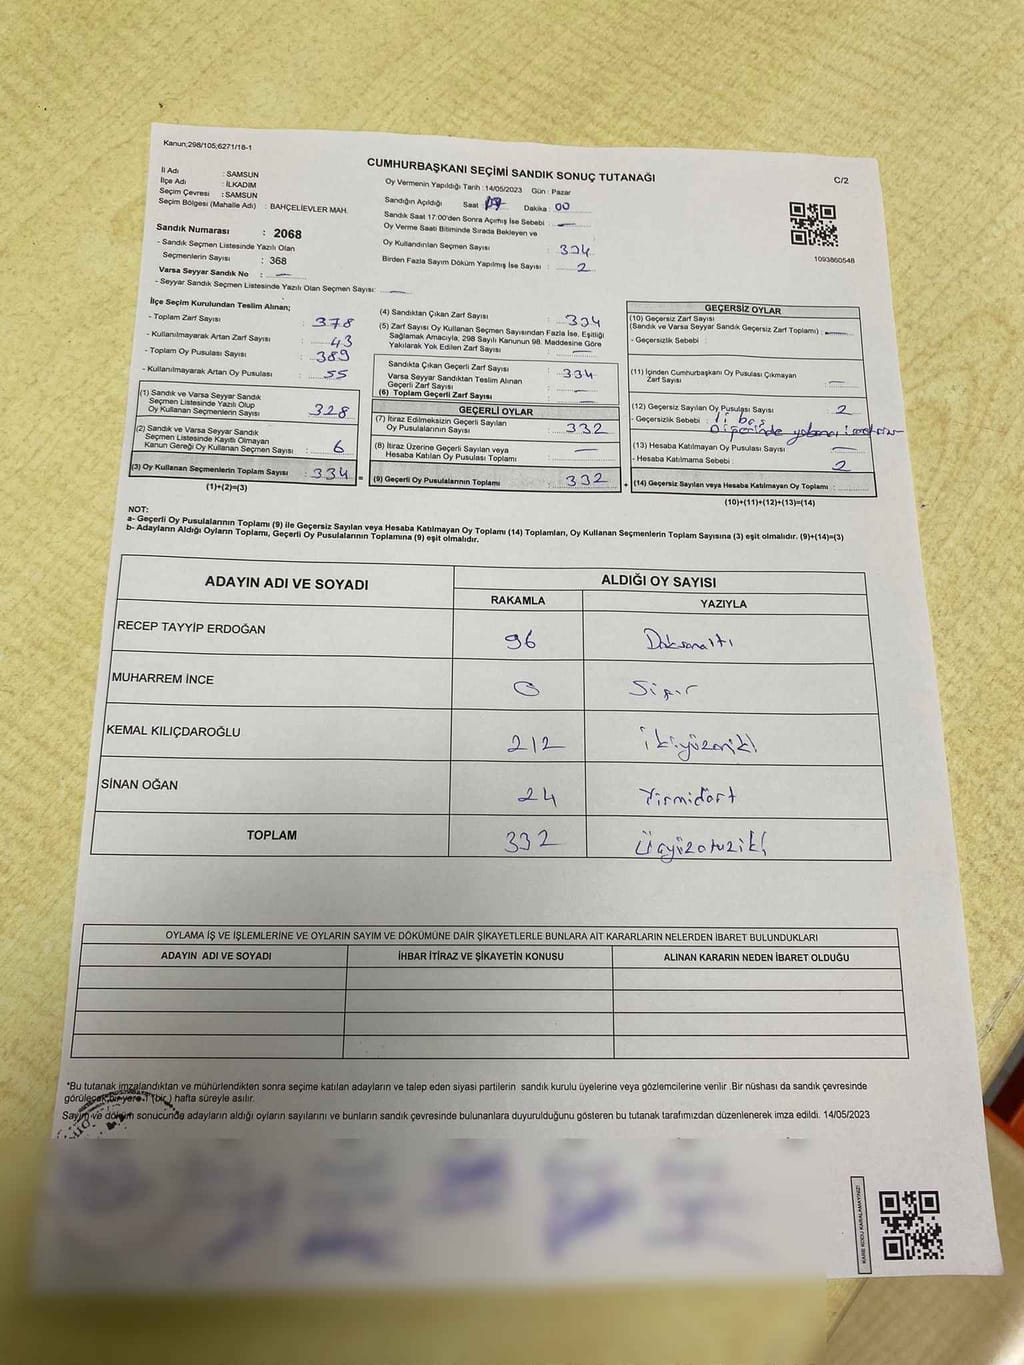 Kanun;298/105;6271/18-1
CUMHURBAŞKANI SEÇİMİ SANDIK SONUÇ TUTANAĞI
C/2
İl Adı : SAMSUN
İlçe Adı : İLKADIM
Seçim Çevresi : SAMSUN
Seçim Bölgesi (Mahalle Adı) : BAHÇELİEVLER MAH.
Sandık Numarası : 2068
- Sandık Seçmen Listesinde Yazılı Olan
Seçmenlerin Sayısı : 368
Varsa Seyyar Sandık No : —
- Seyyar Sandık Seçmen Listesinde Yazılı Olan Seçmen Sayısı: —
Oy Vermenin Yapıldığı Tarih : 14/05/2023 Gün : Pazar
Sandığın Açıldığı Saat Dakika : 00
Sandık Saat 17:00'den Sonra Açılmış İse Sebebi : —
Oy Verme Saati Bitiminde Sırada Bekleyen ve
Oy Kullandırılan Seçmen Sayısı : 334
Birden Fazla Sayım Döküm Yapılmış İse Sayısı : 2
1093860548
İlçe Seçim Kurulundan Teslim Alınan;
- Toplam Zarf Sayısı : 378
- Kullanılmayarak Artan Zarf Sayısı : 43
- Toplam Oy Pusulası Sayısı : 389
- Kullanılmayarak Artan Oy Pusulası : 55
(1) Sandık ve Varsa Seyyar Sandık
Seçmen Listesinde Yazılı Olup
Oy Kullanan Seçmenlerin Sayısı : 328
(2) Sandık ve Varsa Seyyar Sandık
Seçmen Listesinde Kayıtlı Olmayan
Kanun Gereği Oy Kullanan Seçmen Sayısı : 6
(3) Oy Kullanan Seçmenlerin Toplam Sayısı : 334
(1)+(2)=(3)
(4) Sandıktan Çıkan Zarf Sayısı : 334
(5) Zarf Sayısı Oy Kullanan Seçmen Sayısından Fazla İse, Eşitliği
Sağlamak Amacıyla; 298 Sayılı Kanunun 98. Maddesine Göre
Yakılarak Yok Edilen Zarf Sayısı : —
Sandıkta Çıkan Geçerli Zarf Sayısı : 334
Varsa Seyyar Sandıktan Teslim Alınan
Geçerli Zarf Sayısı : —
(6) Toplam Geçerli Zarf Sayısı : —
GEÇERLİ OYLAR
(7) İtiraz Edilmeksizin Geçerli Sayılan
Oy Pusulalarının Sayısı : 332
(8) İtiraz Üzerine Geçerli Sayılan veya
Hesaba Katılan Oy Pusulası Toplamı : —
(9) Geçerli Oy Pusulalarının Toplamı : 332
GEÇERSİZ OYLAR
(10) Geçersiz Zarf Sayısı
(Sandık ve Varsa Seyyar Sandık Geçersiz Zarf Toplamı) : —
- Geçersizlik Sebebi :
(11) İçinden Cumhurbaşkanı Oy Pusulası Çıkmayan
Zarf Sayısı : —
(12) Geçersiz Sayılan Oy Pusulası Sayısı : 2
- Geçersizlik Sebebi :
(13) Hesaba Katılmayan Oy Pusulası Sayısı : —
- Hesaba Katılmama Sebebi : 2
(14) Geçersiz Sayılan veya Hesaba Katılmayan Oy Toplamı :
(10)+(11)+(12)+(13)=(14)
NOT:
a- Geçerli Oy Pusulalarının Toplamı (9) ile Geçersiz Sayılan veya Hesaba Katılmayan Oy Toplamı (14) Toplamları, Oy Kullanan Seçmenlerin Toplam Sayısına (3) eşit olmalıdır. (9)+(14)=(3)
b- Adayların Aldığı Oyların Toplamı, Geçerli Oy Pusulalarının Toplamına (9) eşit olmalıdır.
ADAYIN ADI VE SOYADI ALDIĞI OY SAYISI
RAKAMLA YAZIYLA
RECEP TAYYİP ERDOĞAN 96 Doksanaltı
MUHARREM İNCE 0 Sıfır
KEMAL KILIÇDAROĞLU 212 ikiyüzoniki
SİNAN OĞAN 24 Yirmidört
TOPLAM 332 Üçyüzotuziki
OYLAMA İŞ VE İŞLEMLERİNE VE OYLARIN SAYIM VE DÖKÜMÜNE DAİR ŞİKAYETLERLE BUNLARA AİT KARARLARIN NELERDEN İBARET BULUNDUKLARI
ADAYIN ADI VE SOYADI İHBAR İTİRAZ VE ŞİKAYETİN KONUSU ALINAN KARARIN NEDEN İBARET OLDUĞU
*Bu tutanak imzalandıktan ve mühürlendikten sonra seçime katılan adayların ve talep eden siyasi partilerin sandık kurulu üyelerine veya gözlemcilerine verilir .Bir nüshası da sandık çevresinde
görülecek bir yere 1 (bir ) hafta süreyle asılır.
Sayım ve döküm sonucunda adayların aldığı oyların sayılarını ve bunların sandık çevresinde bulunanlara duyurulduğunu gösteren bu tutanak tarafımızdan düzenlenerek imza edildi. 14/05/2023
KARE KODU KARALAMAYINIZ!